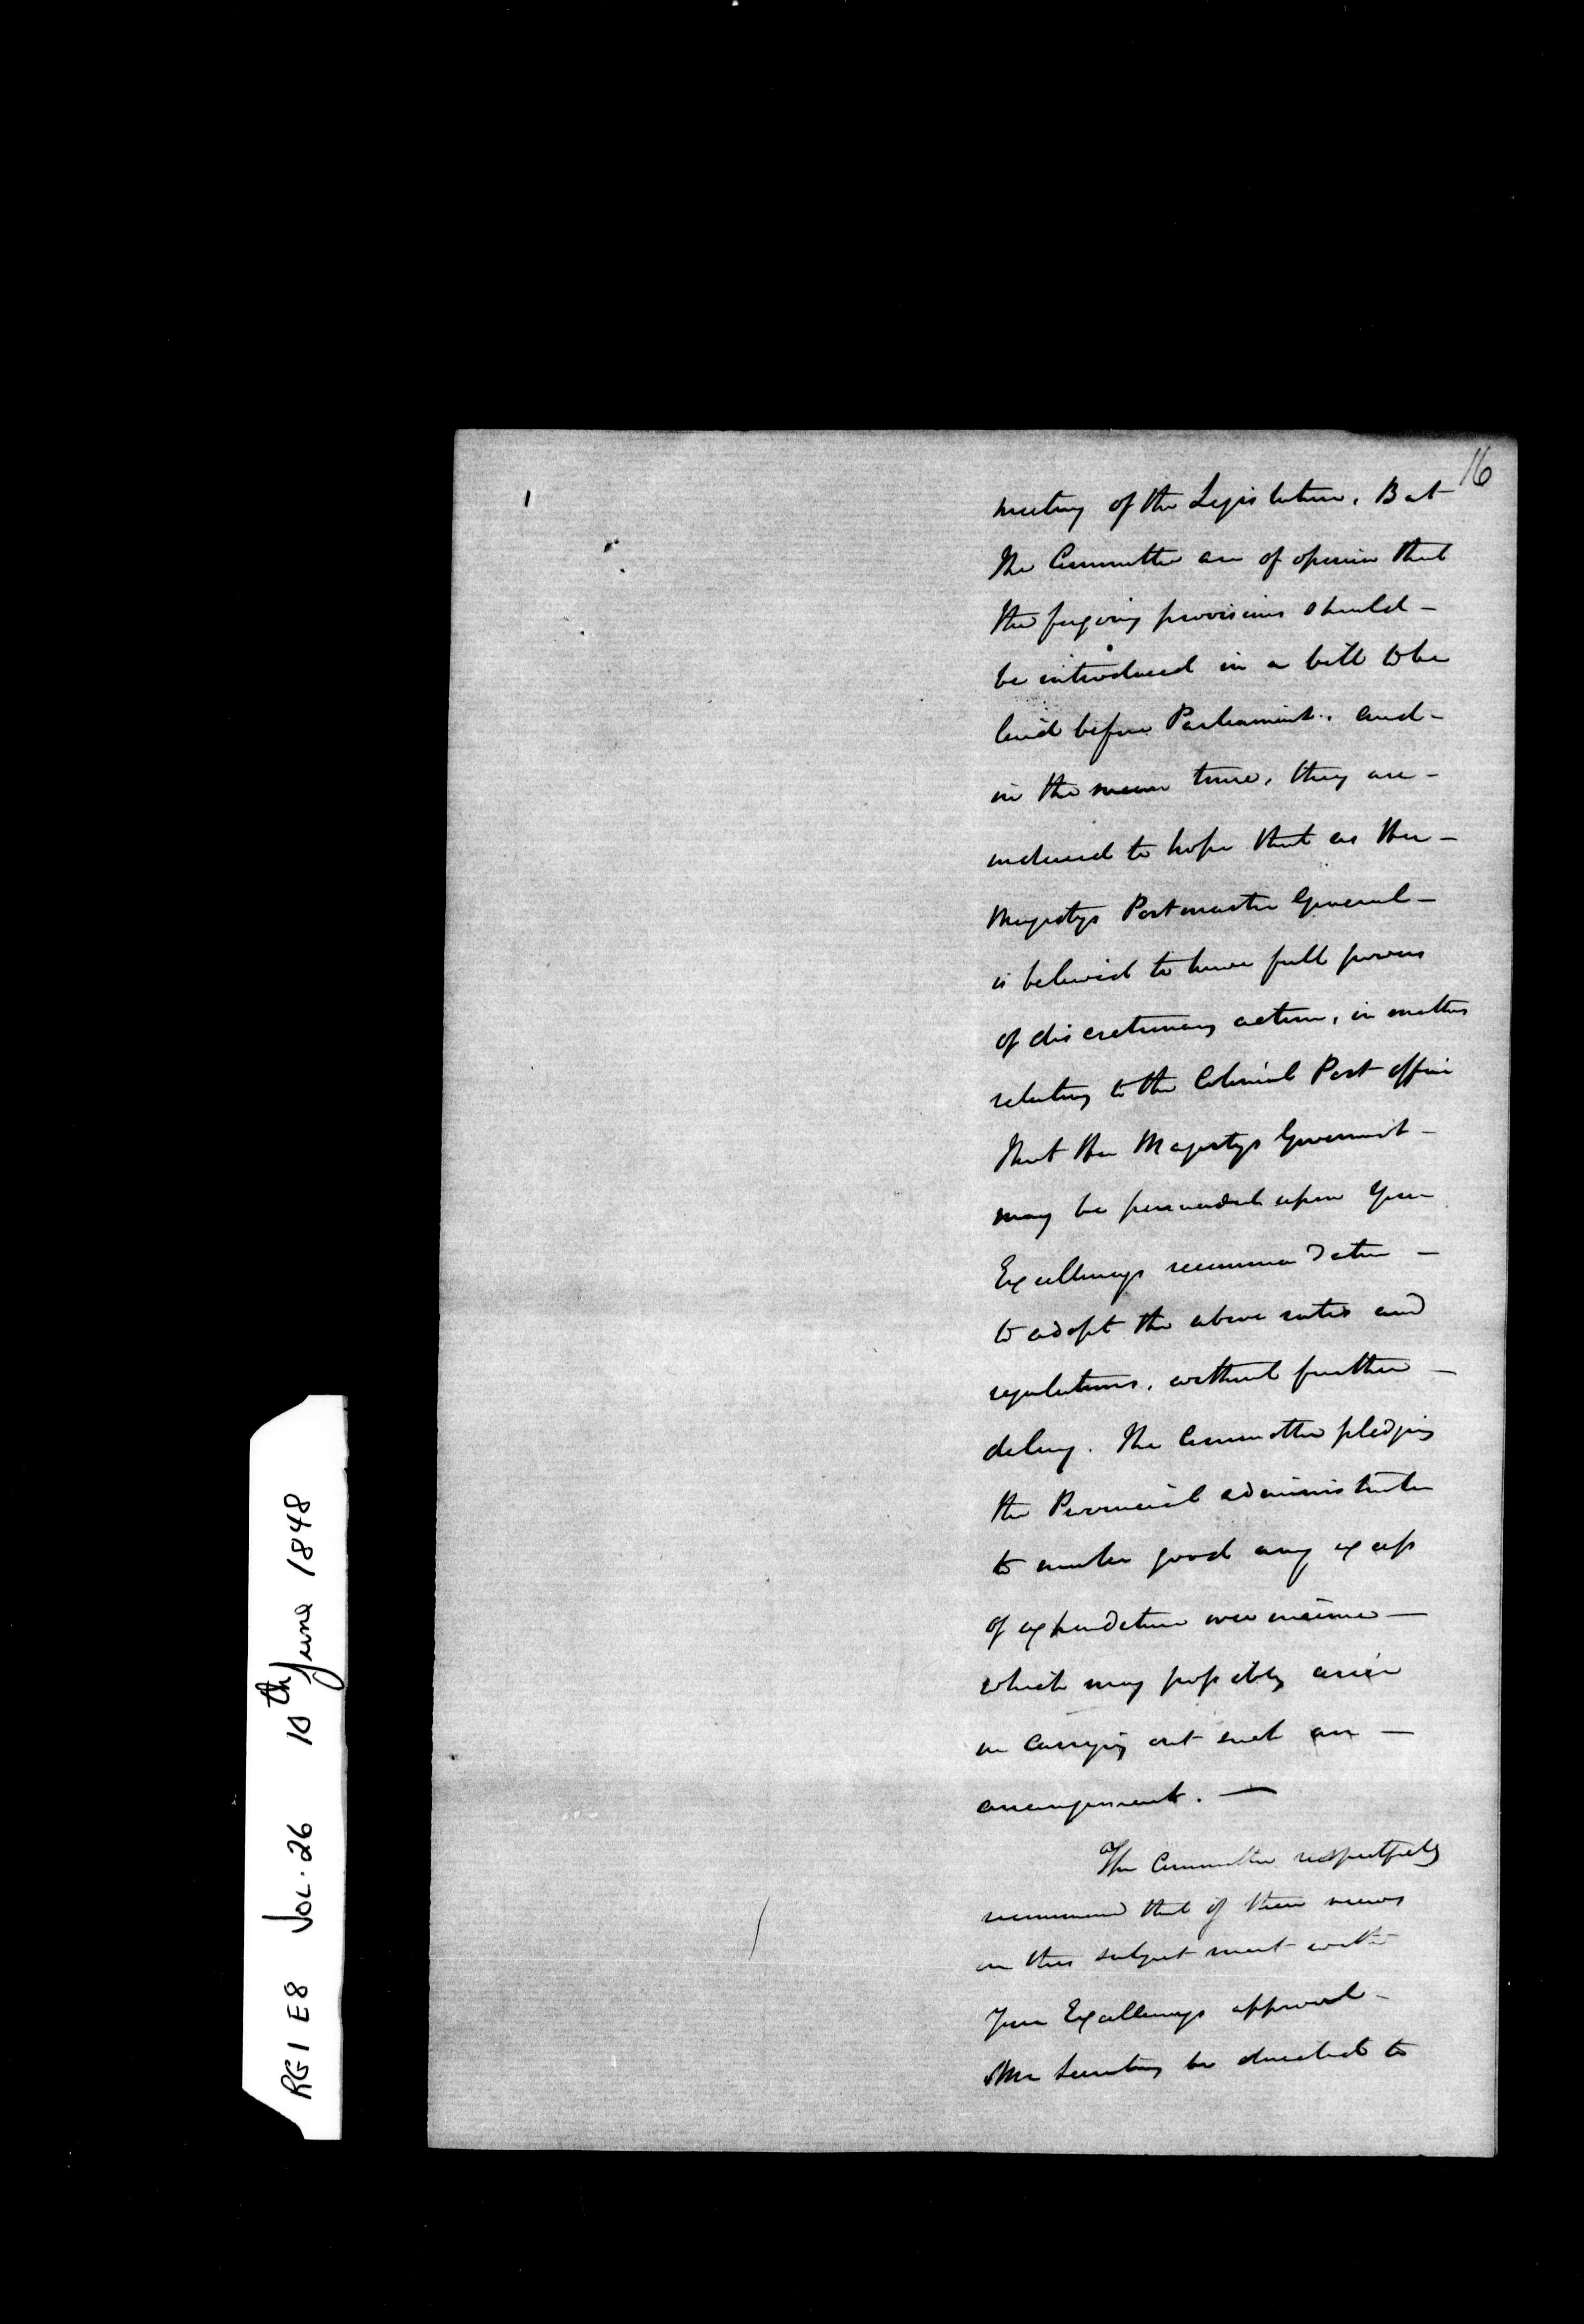 16
meeting of the Legislature. But
the Committee are of opinion that
the forgoing provisions should -
be introduced in a bill to be
laid before Parliament. and -
in the mean time, they are -
induced to hope that as Her -
Majestys Postmaster General -
is believed to have full powers
of discretionary action, in matters
relating to the Colonial Post office
that Her Majestys Government -
may be persuaded upon Your
Excellencys recommendation -
to adopt the above rates and
regulations, without further -
delay. The Committee pledging
the Provincial administration
to make good any excess
of expenditure over income -
which may possibly arise
in carrying out such an -
arrangement. -
The Committee respectfully
recommend that if their views
on this subject meet with
Your Excellencys approval -
Mr Secretary be directed to
RG1 E8 Vol. 26 10th June 1848